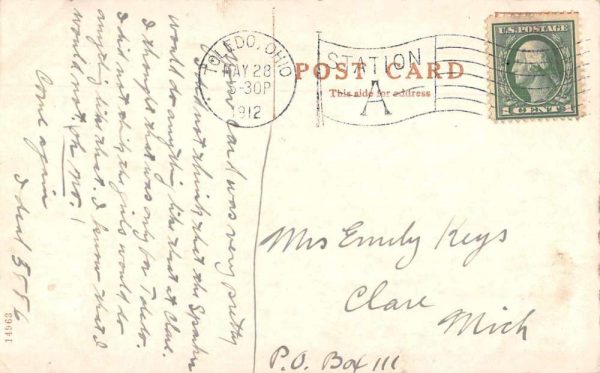 TOLEDO, OHIO
MAY 28
5-30P
1912
STATION
A
U.S. POSTAGE
1 CENT 1
POST CARD
This side for address
Your card was very pretty
I did not think that the Spooks
would do anything like that at Clare.
I thought that was only for Toledo.
I did not think the girls would do
anything like that. I know that I
would not
Come again
I deal 5086
Mrs Emily Keys
Clare
Mich
P.O. Box 111
14963